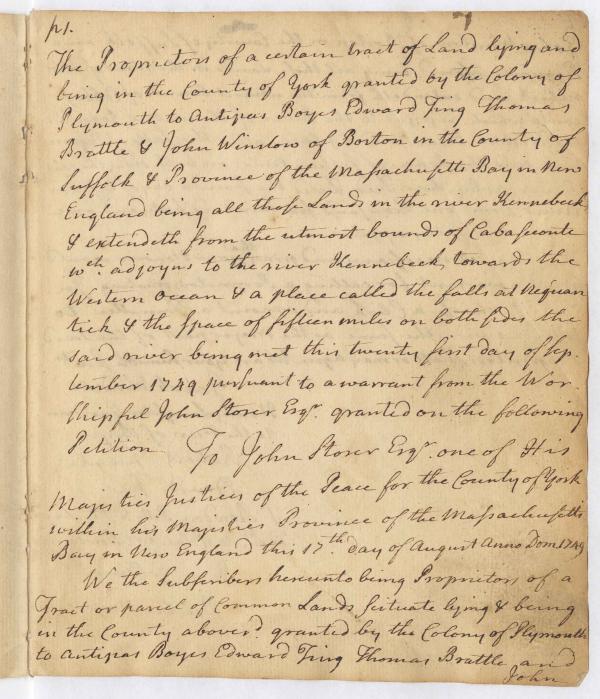 p1.
The Proprietors of a certain tract of Land lying and
being in the County of York granted by the Colony of
Plymouth to Antipas Boyes Edward Ting Thomas
Brattle & John Winslow of Boston in the County of
Suffolk & Province of the Massachusetts Bay in New
England being all those Lands in the river Kennebeck
& extendeth from the utmost bounds of Cabaseconte
wch. adjoyns to the river Kennebeck, towards the
Western Ocean & a place called the falls at Nequan
tick & the space of fifteen miles on both sides the
said river being met this twenty first day of Sep-
tember 1749 pursuant to a warrant from the Wor-
shipful John Storer Esqr. granted on the following
Petition To John Storer Esqr. one of His
Majesties Justices of the Peace for the County of York
within his Majesties Province of the Massachusetts
Bay in New England this 17th day of August Anno Dom. 1749
We the Subscribers hereunto being Proprietors of a
Tract or parcel of Common Lands scituate lying & being
in the County aboves.d granted by the Colony of Plymouth
to Antipas Boyes Edward Ting Thomas Brattle and
John